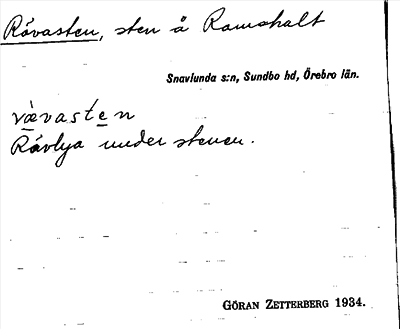 Rävasten, sten å Ramshalt
Snavlunda s:n, Sundbo hd, Örebro län.
rä̀vasten
Rävlya under stenen.
GÖRAN ZETTERBERG 1934.